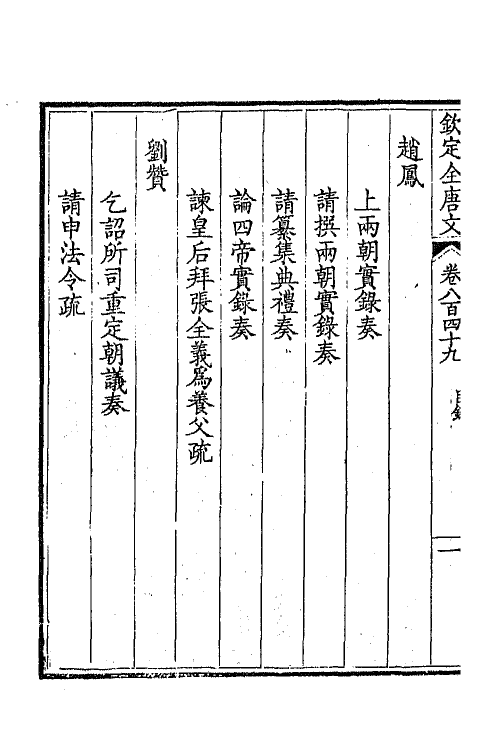 欽定全唐文 卷八百四十九 目錄 一
趙鳳
上兩朝實錄奏
請撰兩朝實錄奏
請纂集典禮奏
論四帝實錄奏
諫皇后拜張全義爲養父疏
劉贊
乞詔所司重定朝議奏
請申法令疏